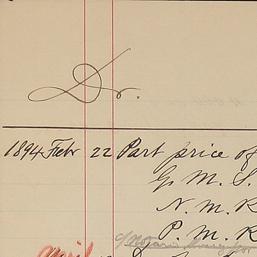 Dr.
1894 Febr 22 Part price of
G. M. S.
N. M. R
P. M. R
April